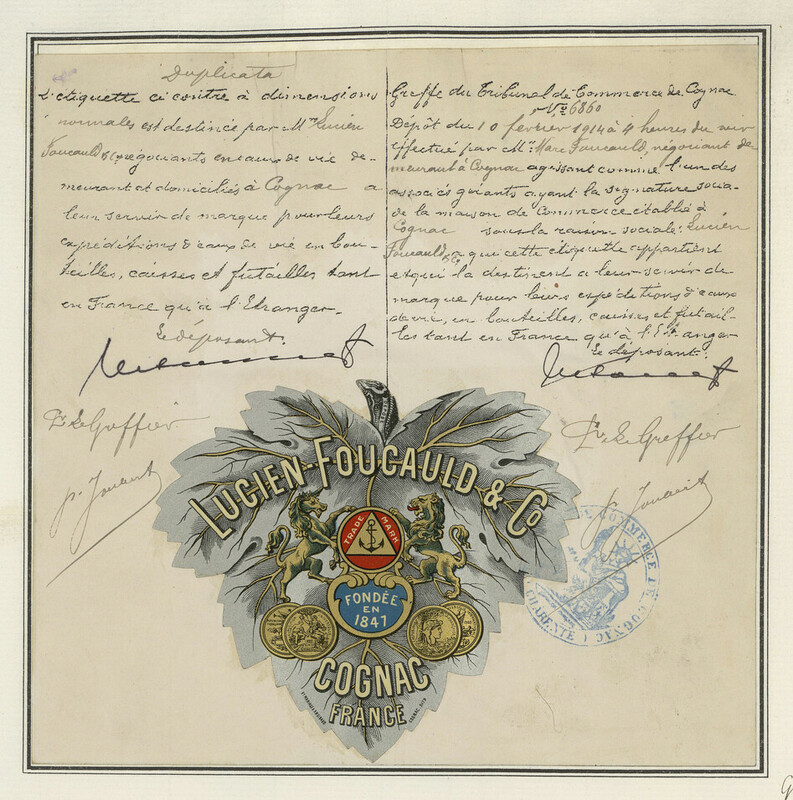 Duplicata
L'étiquette ci contre à dimensions
normales est destinée par Mrs Lucien
Foucauld & Co négociants en eaux de vie de-
meurant et domiciliés à Cognac a
leur servir de marque pour leurs
expéditions d'eaux de vie en bou-
teilles, caisses et futailles tant
en France qu'à l'Etranger.
Le déposant.
Pr Le Greffier
Greffe du Tribunal de Commerce de Cognac
No 6860
Dépôt du 10 février 1914 à 4 heures du soir
effectué par Mr Marc Foucauld, négociant de-
meurant à Cognac agissant comme l'un des
associés gérants ayant la signature socia-
de la maison de Commerce établie à
Cognac sous la raison sociale: Lucien
Foucauld & Co qui cette étiquette appartient
et qui la destinent a leur servir de
marque pour leurs expéditions d'eaux
de vie, en bouteilles, caisses et futail-
les tant en France qu'à l'Etranger
Le déposant.
Pr Le Greffier
LUCIEN-FOUCAULD & Co
TRADE MARK
FONDÉE
EN
1847
COGNAC
FRANCE
COMMERCE DE COGNAC
(CHARENTE)